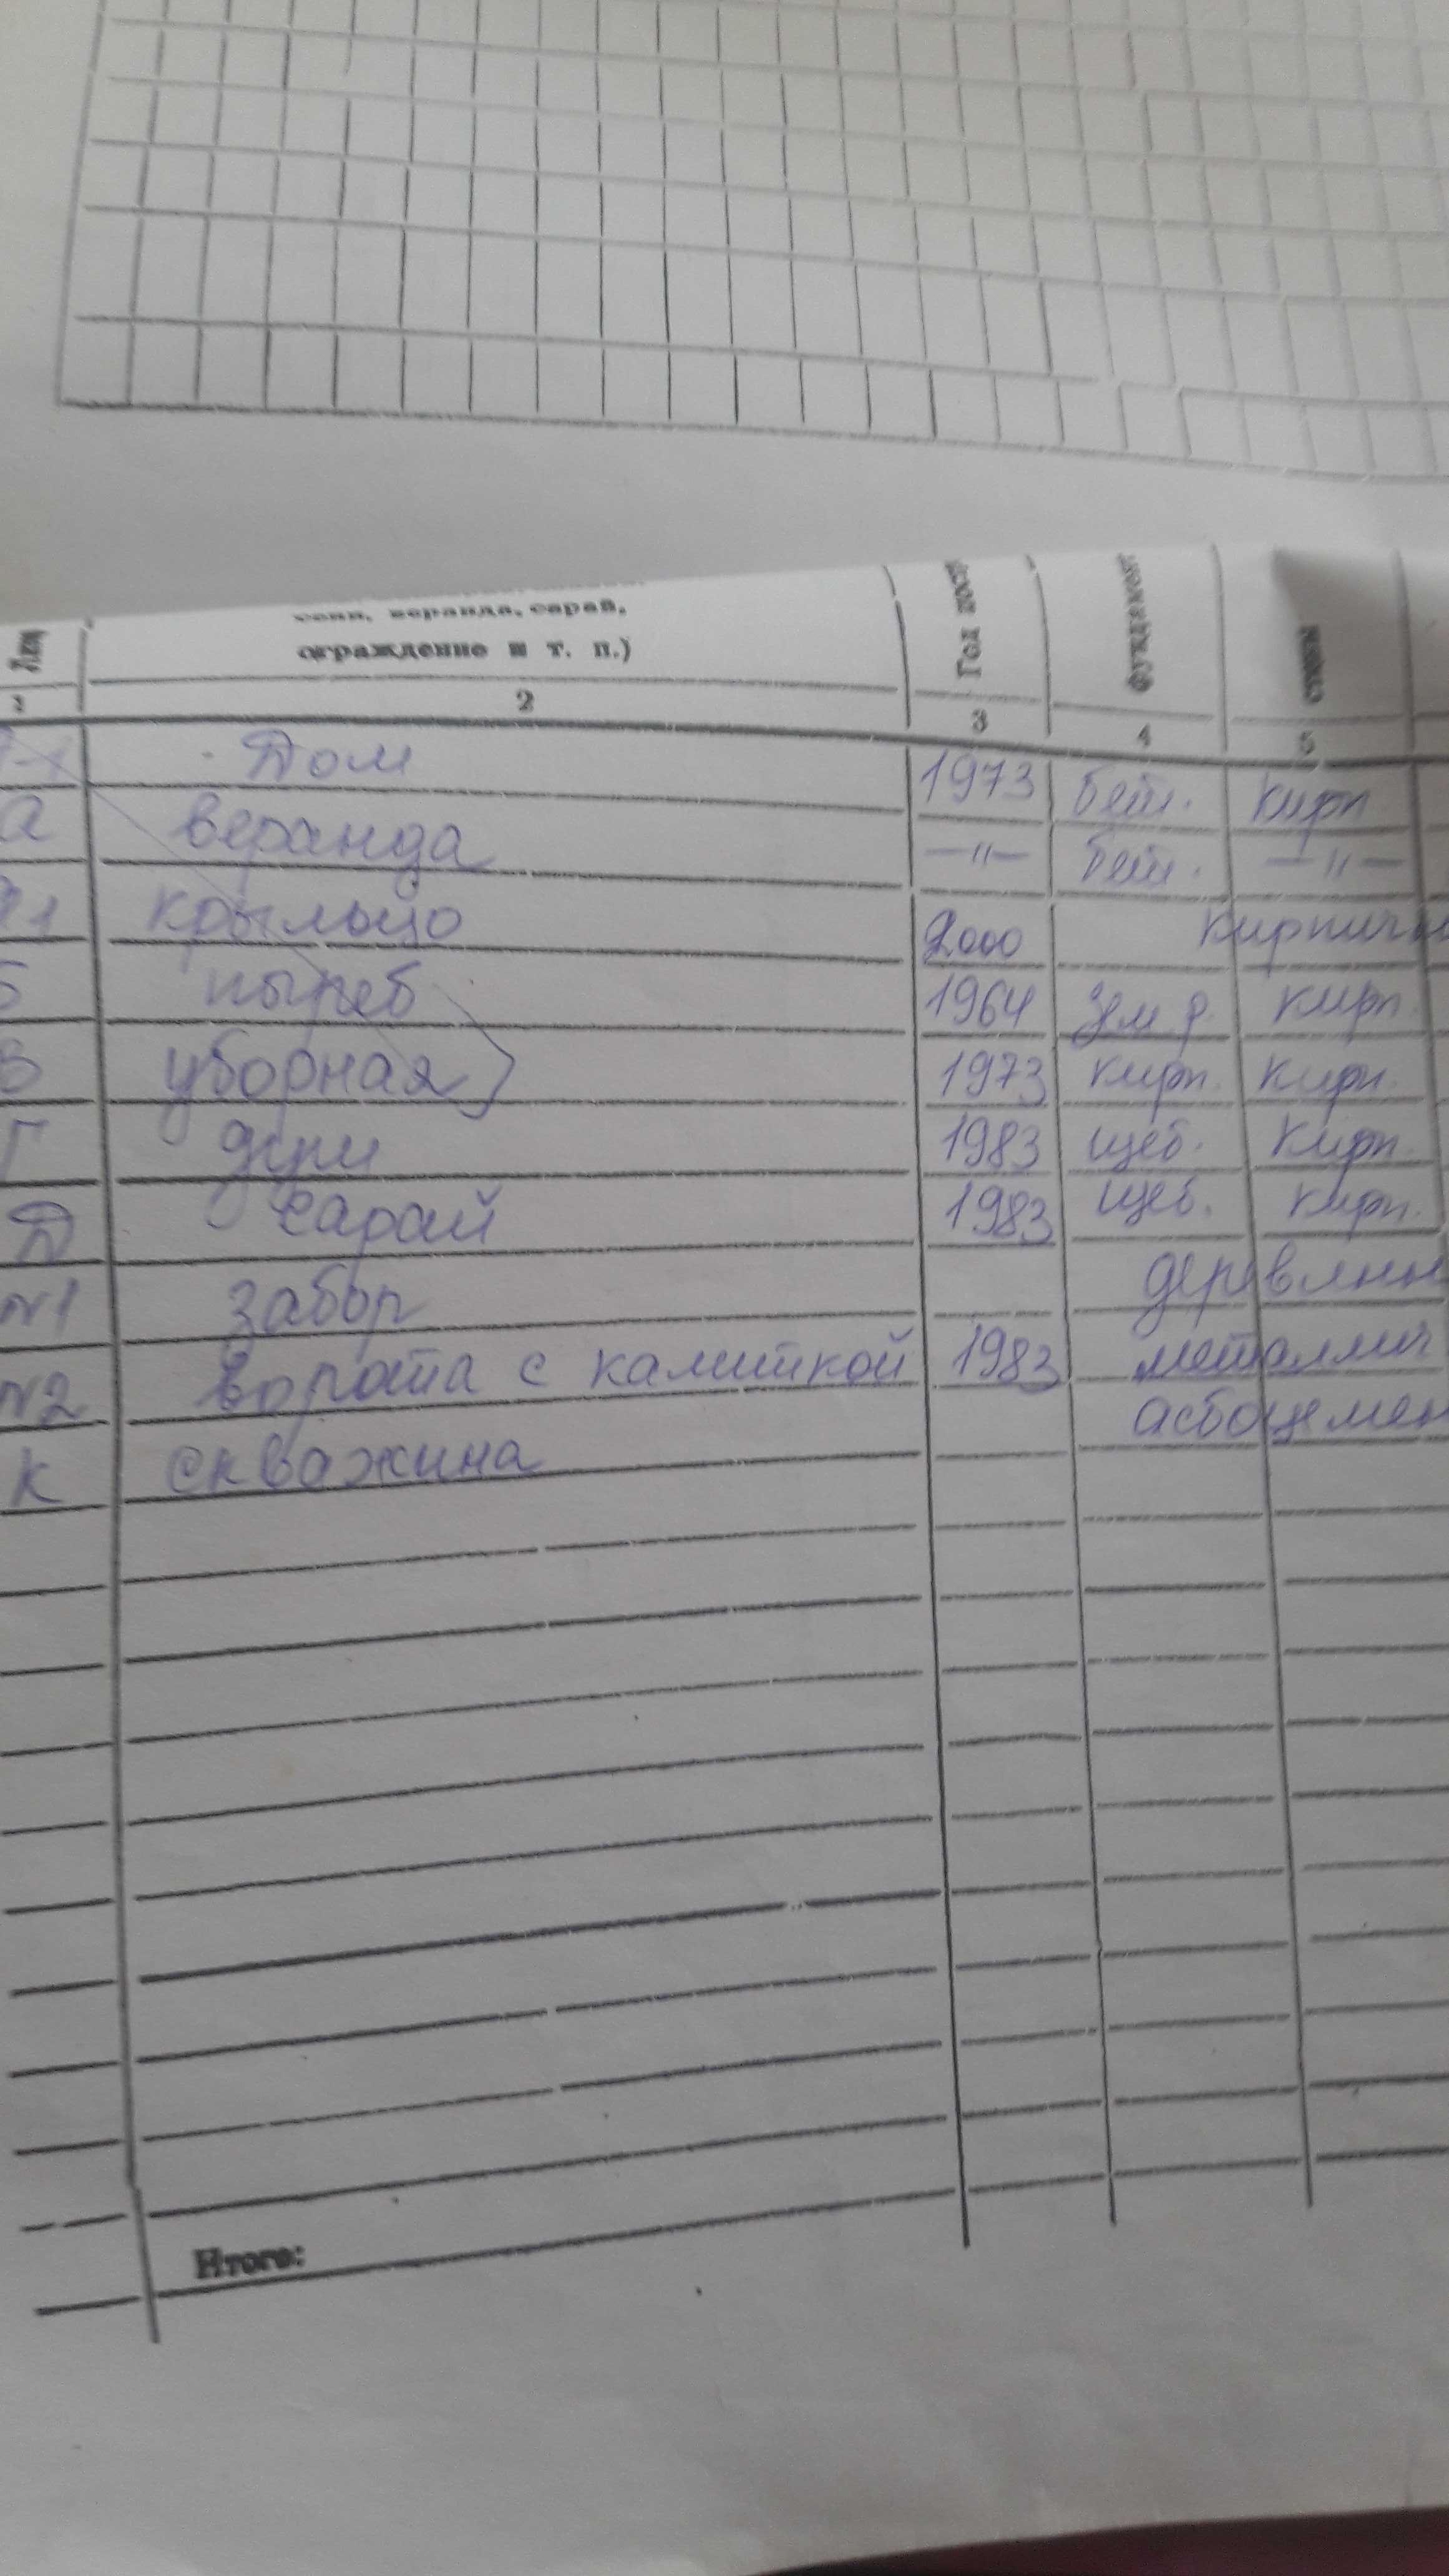 веранда, сарай,
ограждение и т. п.)
Год
Фундамент
стены
1 2 3 4 5
Дом 1973 бет. кирп
а веранда —"— бет. —"—
крыльцо 2000 кирпичн
погреб 1964 кирп.
В уборная 1973 кирп. кирп.
Г душ 1983 щеб. кирп.
Д сарай 1983 щеб. кирп.
N1 забор деревянн
N2 ворота с калиткой 1983 металлич
К скважина асбоцемен
Итого: